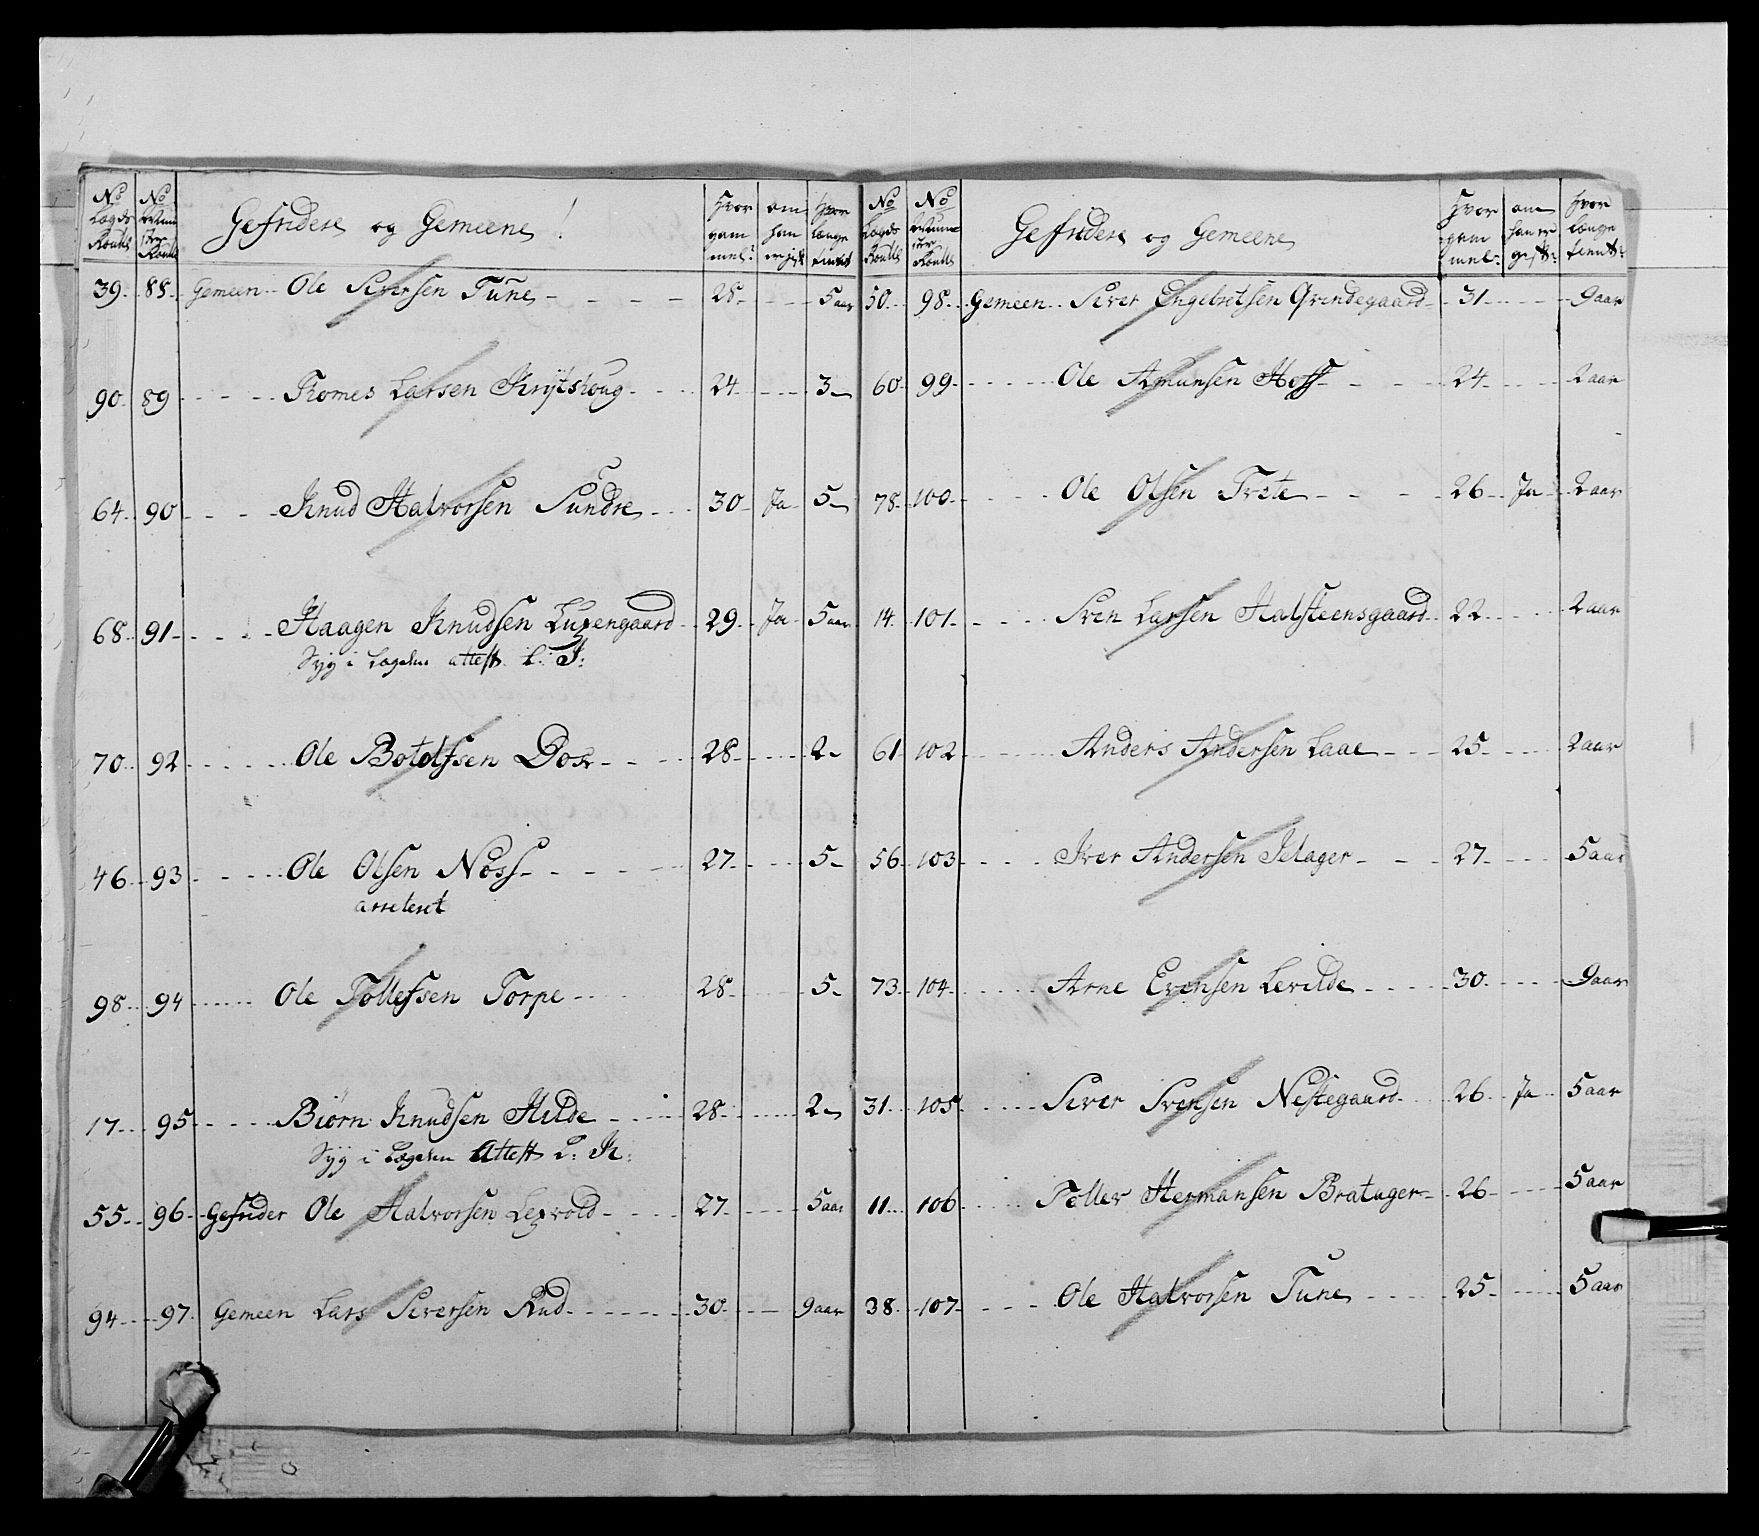 No Lægds Roulls | No Numer Roulls | Gefridere og Gemeene | Hvor gammel: | om han er gift | Hvor længe tient
39 | 88 | Gemeen Ole Siversen Tune | 28 | 5 aar
90 | 89 | Tomes Larsen Krÿtshoug | 24 | 3
64 | 90 | Knud Halvorsen Sundre | 30 | Ja | 5
68 | 91 | Haagen Knudsen Luxengaard | 29 | Ja | 5 aar
Syg i Lægden attest L: J:
70 | 92 | Ole Botolfsen Dox | 28 | 2
46 | 93 | Ole Olsen Næss | 27 | 5
arreteret
98 | 94 | Ole Tollefsen Torpe | 28 | 5
17 | 95 | Biørn Knudsen Hilde | 28 | 2
Syg i Lægden Attest L: K:
55 | 96 | Gefrider Ole Halvorsen Lexvold | 27 | 5 aar
94 | 97 | Gemeen Lars Siversen Rud | 30 | 9 aar
No Lægds Roulls | No Numer Roulls | Gefridere og Gemeene | Hvor gammel: | om han er gift: | Hvor længe tient:
50 | 98 | Gemeen Siver Engebretsen Grindegaard | 31 | 9 aar
60 | 99 | Ole Amunsen Hoff | 24 | 2 aar
78 | 100 | Ole Olsen Trete | 26 | Ja | 2 aar
14 | 101 | Sven Larsen Halsteensgaard | 22 | 2 aar
61 | 102 | Anders Andersen Laae | 25 | 2 aar
56 | 103 | Iver Andersen Jelager | 27 | 5 aar
73 | 104 | Arne Evensen Levilde | 30 | 9 aar
31 | 105 | Siver Svensen Nestegaard | 26 | Ja | 5 aar
11 | 106 | Toller Hermansen Bratager | 26 | 5 aar
38 | 107 | Ole Halvorsen Tune | 25 | 5 aar